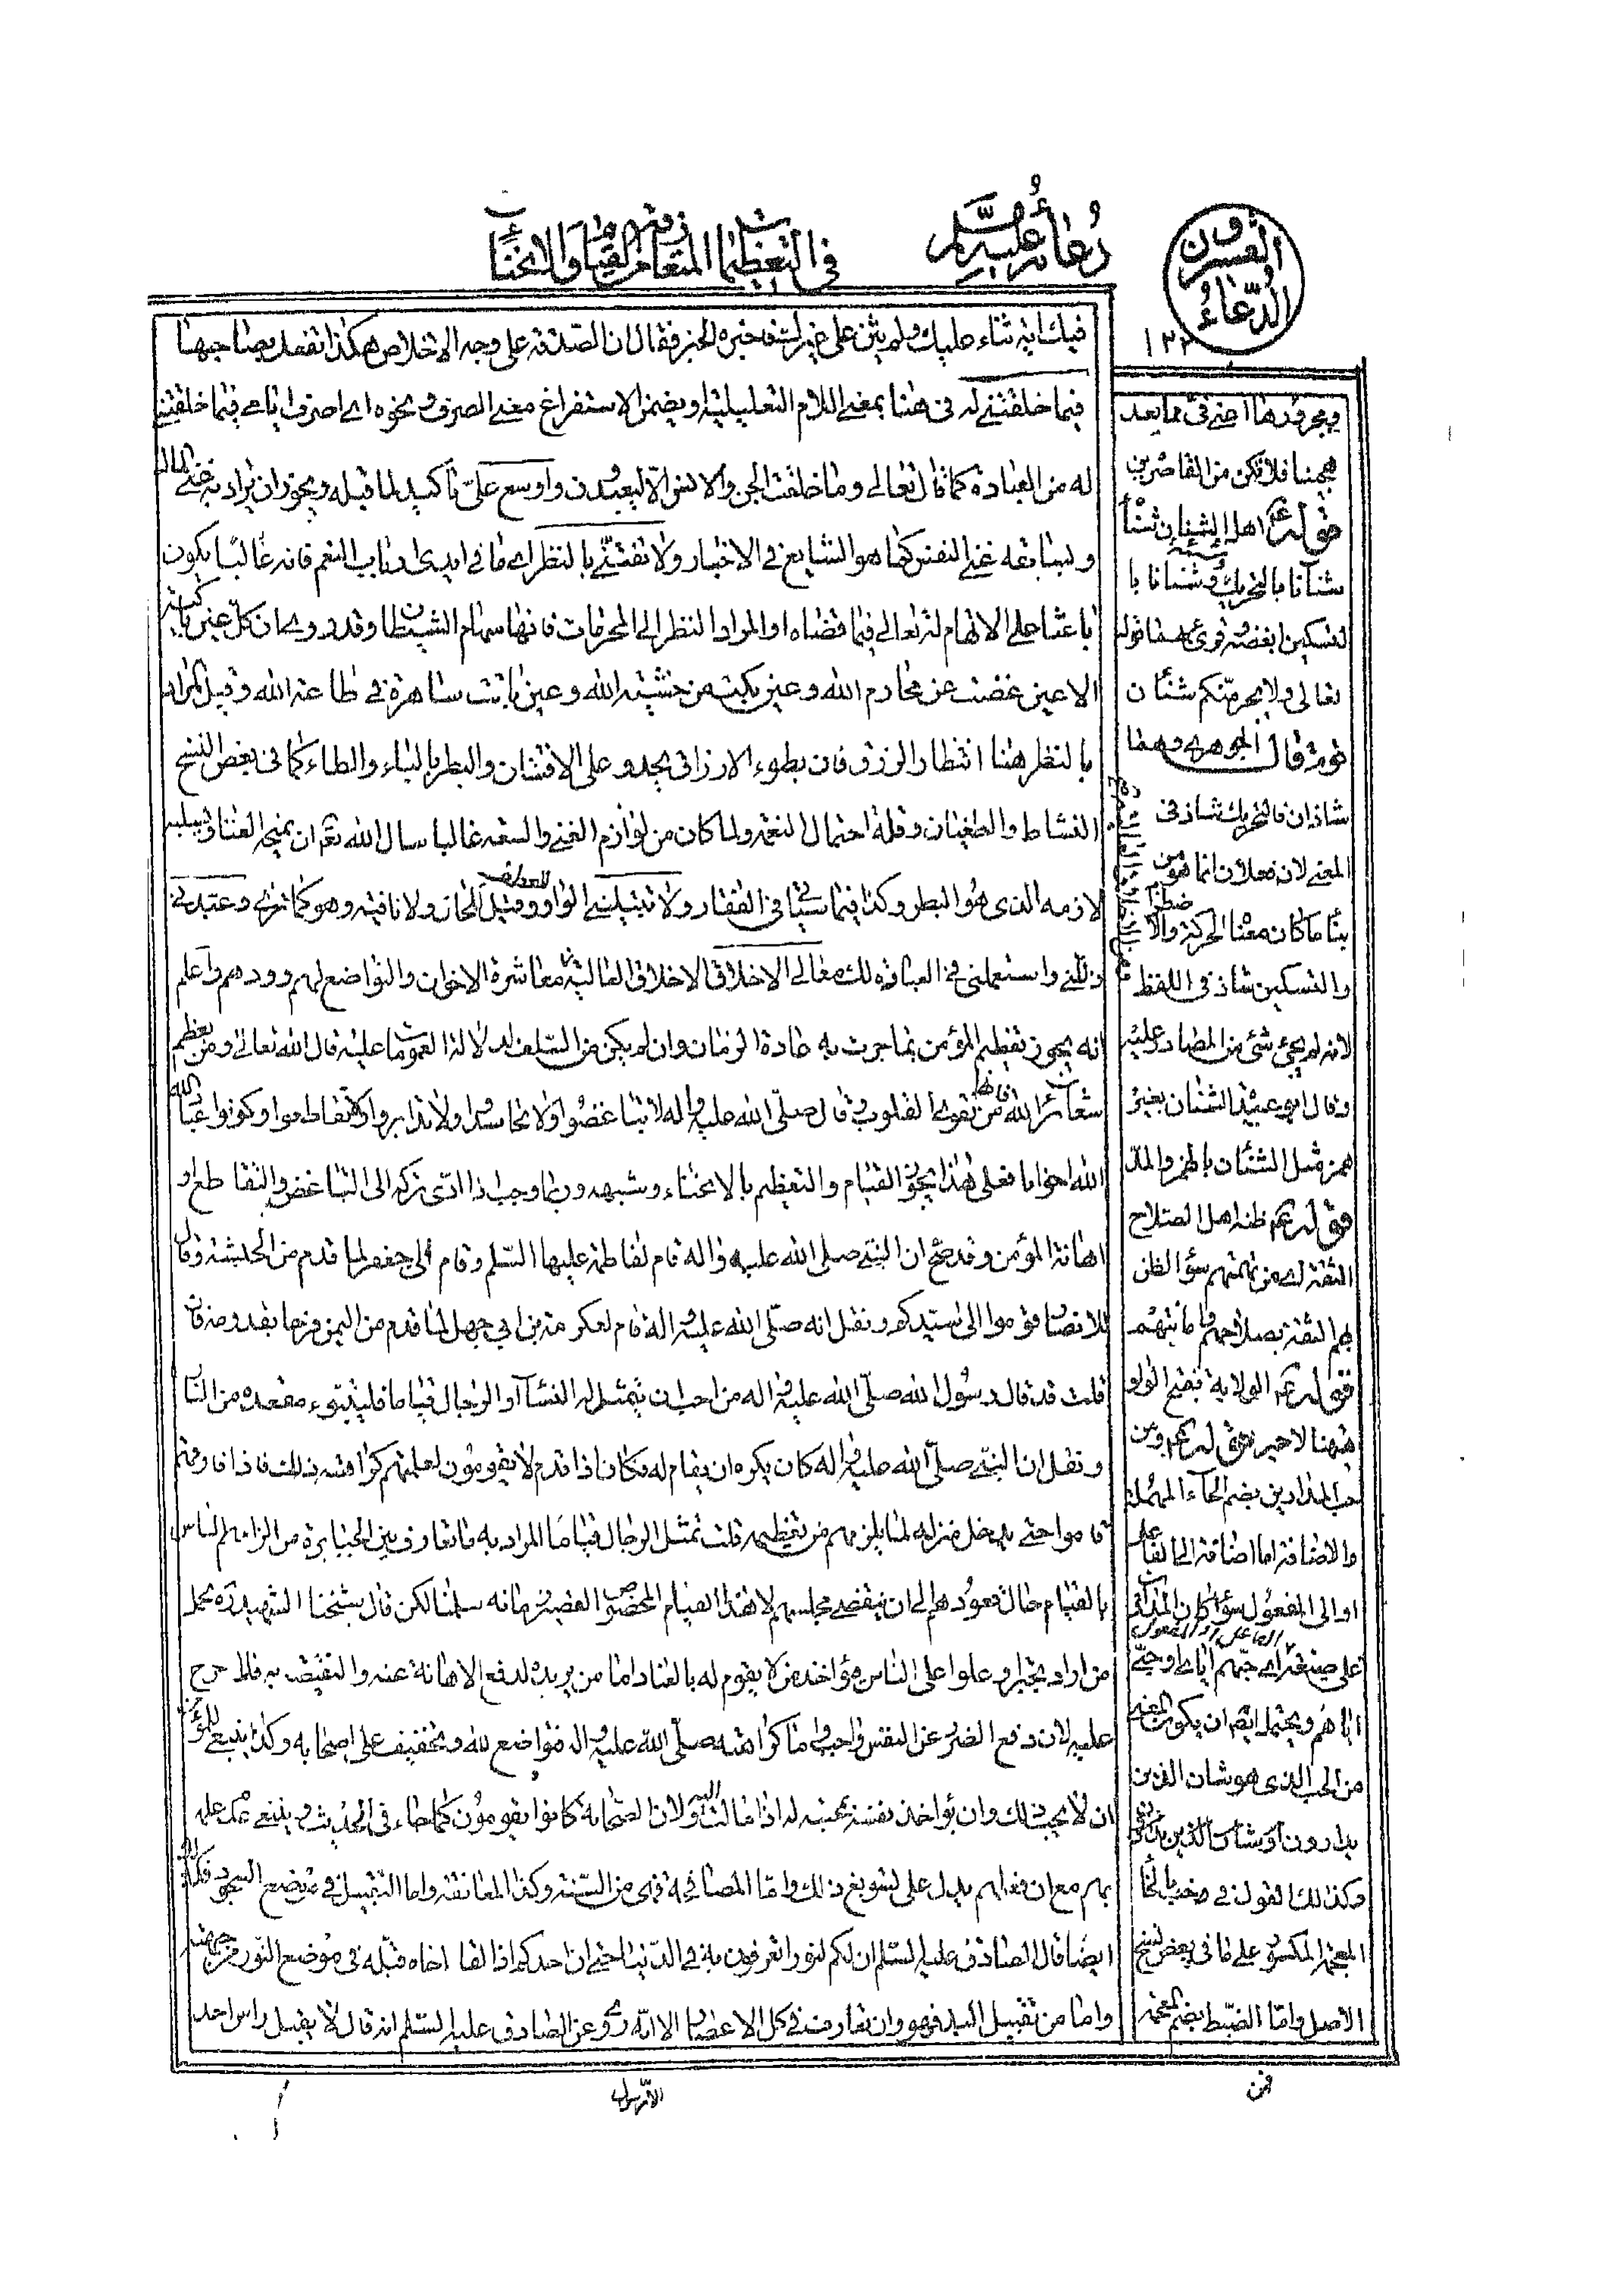 الدعاء العشرون
١٢٢
دعائه عليه السلام
في التعظيمات المتعارفة من القيام والانحناء
فيك اية ثناء عليك ولم يثن على خير فقال ان الصدقة على وجه الاخلاص هكذا تفعل بصاحبها
فيما خلقتني له في هنا بمعنى اللام التعليلية ويضمن الاستفراغ معنى الصرف ونحوه اي اصرف ايامي فيما خلقتني
له من العبادة كما قال تعالى وما خلقت الجن والانس الا ليعبدون واوسع علي تاكيد لما قبله ويجوز ان يراد به غنى المال
وبسابقه غنى النفس كما هو الشايع في الاخبار ولا تفتني بالنظر اي ما في ايدي ارباب النعم فانه غالبا يكون
باعثا على الاتهام له تعالى فيما قضاه او المراد النظر الى المحرمات فانها سهام الشيطان وقد روى ان كل عين باكية
الا عين غضت عن محارم الله وعين بكت من خشية الله وعين باتت ساهرة في طاعة الله وقيل المراد
بالنظر هنا انتظار الرزق فان بطوء الارزاق يحدو على الافتتان والبطر بالباء والطاء كما في بعض النسخ
النشاط والطغيان وقلة احتمال النعمة ولما كان من لوازم الغنى والسعة غالبا سال الله تعالى ان يمنحه الغنا ويسلبه
لازمه الذي هو البطر وكذا فيما سياتي في الفقار ولا تبتليني الواو للعطف وقيل للحال ولا نافية وهو كما ترى وعبدني
ذللني واستعملني في العبادة لك معالي الاخلاق الاخلاق العالية معاشرة الاخوان والتواضع لهم وودهم واعلم
انه يجوز تعظيم المؤمن بما جرت به عادة الزمان وان لم يكن من السلف لدلالة العمومات عليه قال الله تعالى ومن يعظم
شعائر الله فانها من تقوى القلوب وقال صلى الله عليه واله لا تباغضوا ولا تحاسدوا ولا تدابروا ولا تقاطعوا وكونوا عباد الله
الله اخوانا فعلى هذا يجوز القيام والتعظيم بالانحناء وشبهه وربما وجب اذا ادى تركه الى التباغض والتقاطع او
اهانة المؤمن وقد صح ان النبي صلى الله عليه واله قام لفاطمة عليها السلم وقام الى جعفر لما قدم من الحبشة وقال
للانصار قوموا الى سيدكم ونقل انه صلى الله عليه واله قام لعكرمة بن ابي جهل لما قدم من اليمن فرحا بقدومه فان
قلت قد قال رسول الله صلى الله عليه واله من احب ان يتمثل له النساء او الرجال قياما فليتبوء مقعده من النار
ونقل ان النبي صلى الله عليه واله كان يكره ان يقام له فكان اذا قدم لا يقومون لعلمهم كراهته ذلك فاذا فارقهم
قاموا حتى يدخل منزله لما يلزمهم من تعظيمه قلت تمثل الرجال قياما المراد به ما تعارف بين الجبابرة من الزامهم الناس
بالقيام حال قعودهم الى ان ينقضي مجلسهم لا هذا القيام المخصوص القصير زمانه سلمنا لكن قال شيخنا الشهيد ره يحمل
من اراد تجبرا وعلوا على الناس فيؤاخذ من لا يقوم له بالعناد اما من يريده لدفع الاهانة عنه والنقيصة به فلا حرج
عليه لان دفع الضرر عن النفس واجب واما كراهته صلى الله عليه واله فتواضع لله وتخفيف على اصحابه وكذا ينبغي للمؤمن
ان لا يحب ذلك وان يؤاخذ نفسه بمحبته له اذا مالت اليه ولان الصحابة كانوا يقومون كما جاء في الحديث ويبعد عدم علمه
بهم مع ان فعلهم يدل على تسويغ ذلك واما المصافحة فهي من السنة وكذا المعانقة واما التقبيل في موضع السجود
ايضا قال الصادق عليه السلم ان لكم لنورا تعرفون به في الدنيا حتى ان احدكم اذا لقا اخاه قبله في موضع النور من جبهته
واما من تقبيل اليد فهو وان تعارف في كل الاعصار الا انه روى عن الصادق عليه السلم انه قال لا يقبل راس احد
ومجرورها اجنبي مما بعد
قوله ع اهل الشنان شنأ
شنآنا بالتحريك وشنانا با
لتسكين ابغضته قرئ بهما قوله
تعالى ولا يجرمنكم شنئان
قوم قال الجوهري وهما
شاذان فالتحريك شاذ في
المعنى لان فعلان انما هو من
بناء ما كان معناه الحركة والاضطراب
والتسكين شاذ في اللفظ
لانه لم يجئ شئ من المصادر عليه
وقال ابو عبيد الشنان بغير
همز مثل الشنئان بالهمز والمد
قوله ع ظنة اهل الصلاح
الثقة اي من تهمتهم سؤ الظن
بهم الثقة بصلاحهم وامانتهم
قوله ع الولاية بفتح الواو
ههنا لا غير قوله ع ومن
حب المدارين بضم الحاء المهملة
والاضافة اما اضافة الى الفاعل
او الى المفعول سواء كان المداري
على صيغة الفاعل او المفعول اي حبهم اياي او حبي
اياهم ويحتمل ايضا ان يكون المعنى
من الحب الذي هو شان الذين
يدارون او شان الذين يدارون
وكذلك القول في صحب بالخاء
المعجمة المكسورة على ما في بعض نسخ
الاصل واما الضبط بضم المعجمة
الا رسول
فمن